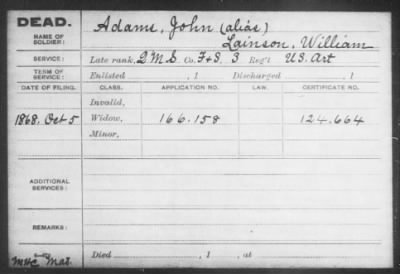 DEAD.
NAME OF SOLDIER:
Adams, John (alias)
Lainson, William
SERVICE:
Late rank, Q.M.S. Co. F&S, 3 Reg't U.S. Art
TERM OF SERVICE:
Enlisted , 1 Discharged , 1
DATE OF FILING. CLASS. APPLICATION NO. LAW. CERTIFICATE NO.
Invalid,
1868. Oct 5 Widow, 166.158 124.664
Minor,
ADDITIONAL SERVICES:
REMARKS:
Died , 1 , at